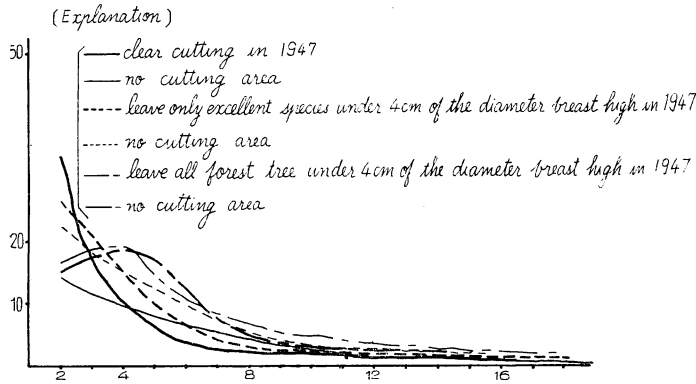 (Explanation)
50
clear cutting in 1947
no cutting area
leave only excellent species under 4cm of the diameter breast high in 1947
no cutting area
leave all forest tree under 4cm of the diameter breast high in 1947
no cutting area
20
10
2 4 8 12 16